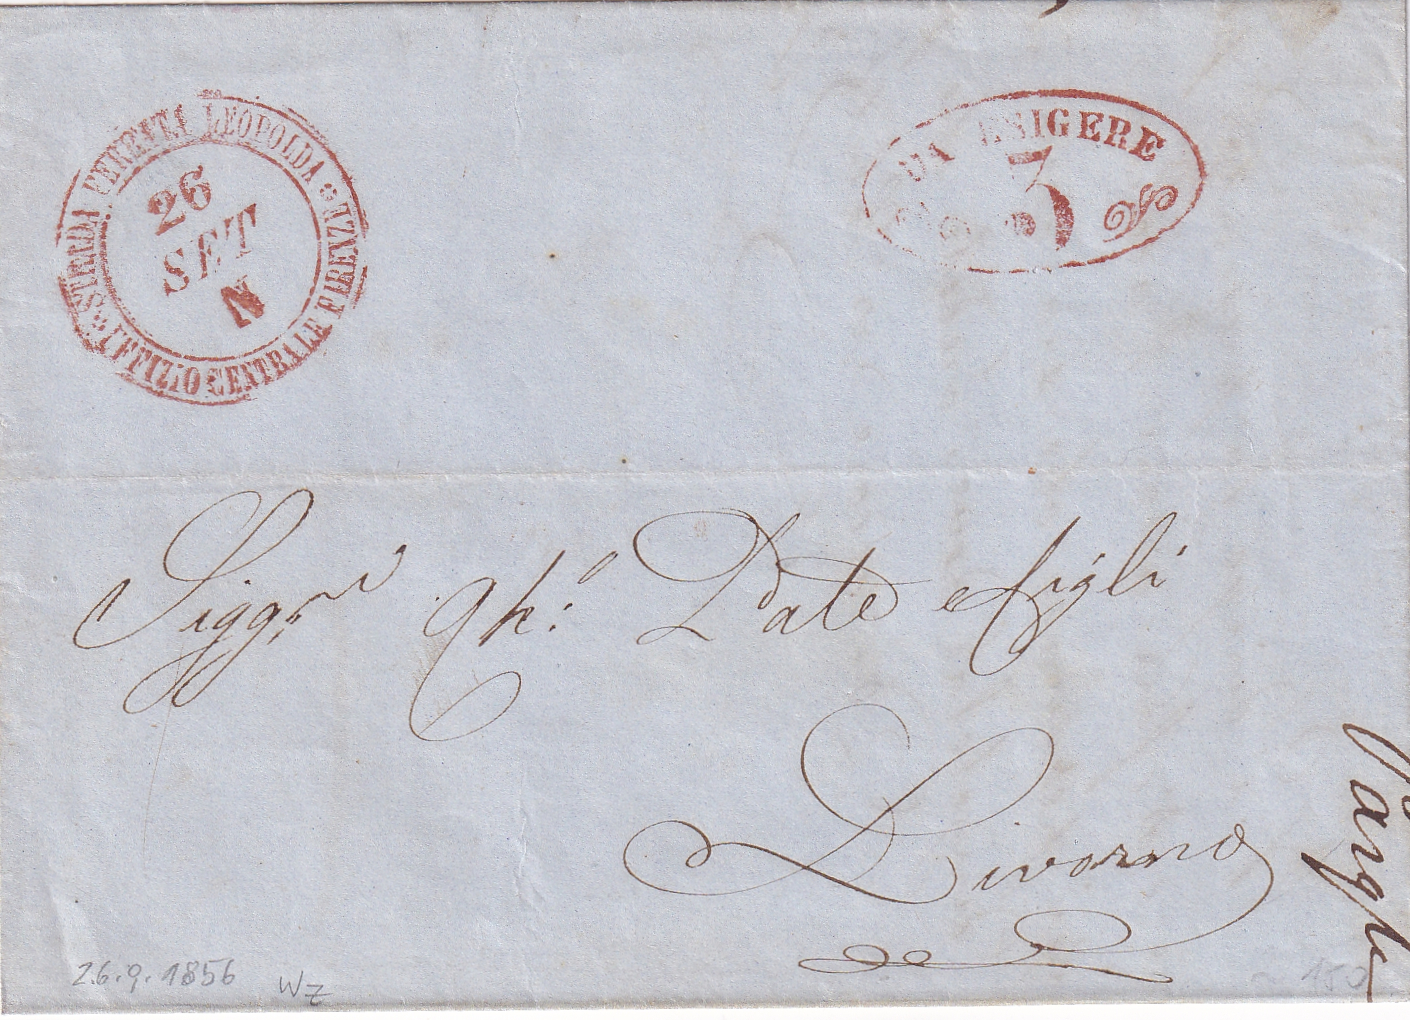 STRADA FERRATA LEOPOLDA
26
SET
N
UFFIZIO CENTRALE FIRENZE
DA ESIGERE
3
Sigg.ri Gh.o Pate e figli
Livorno
26.9.1856 WZ
150